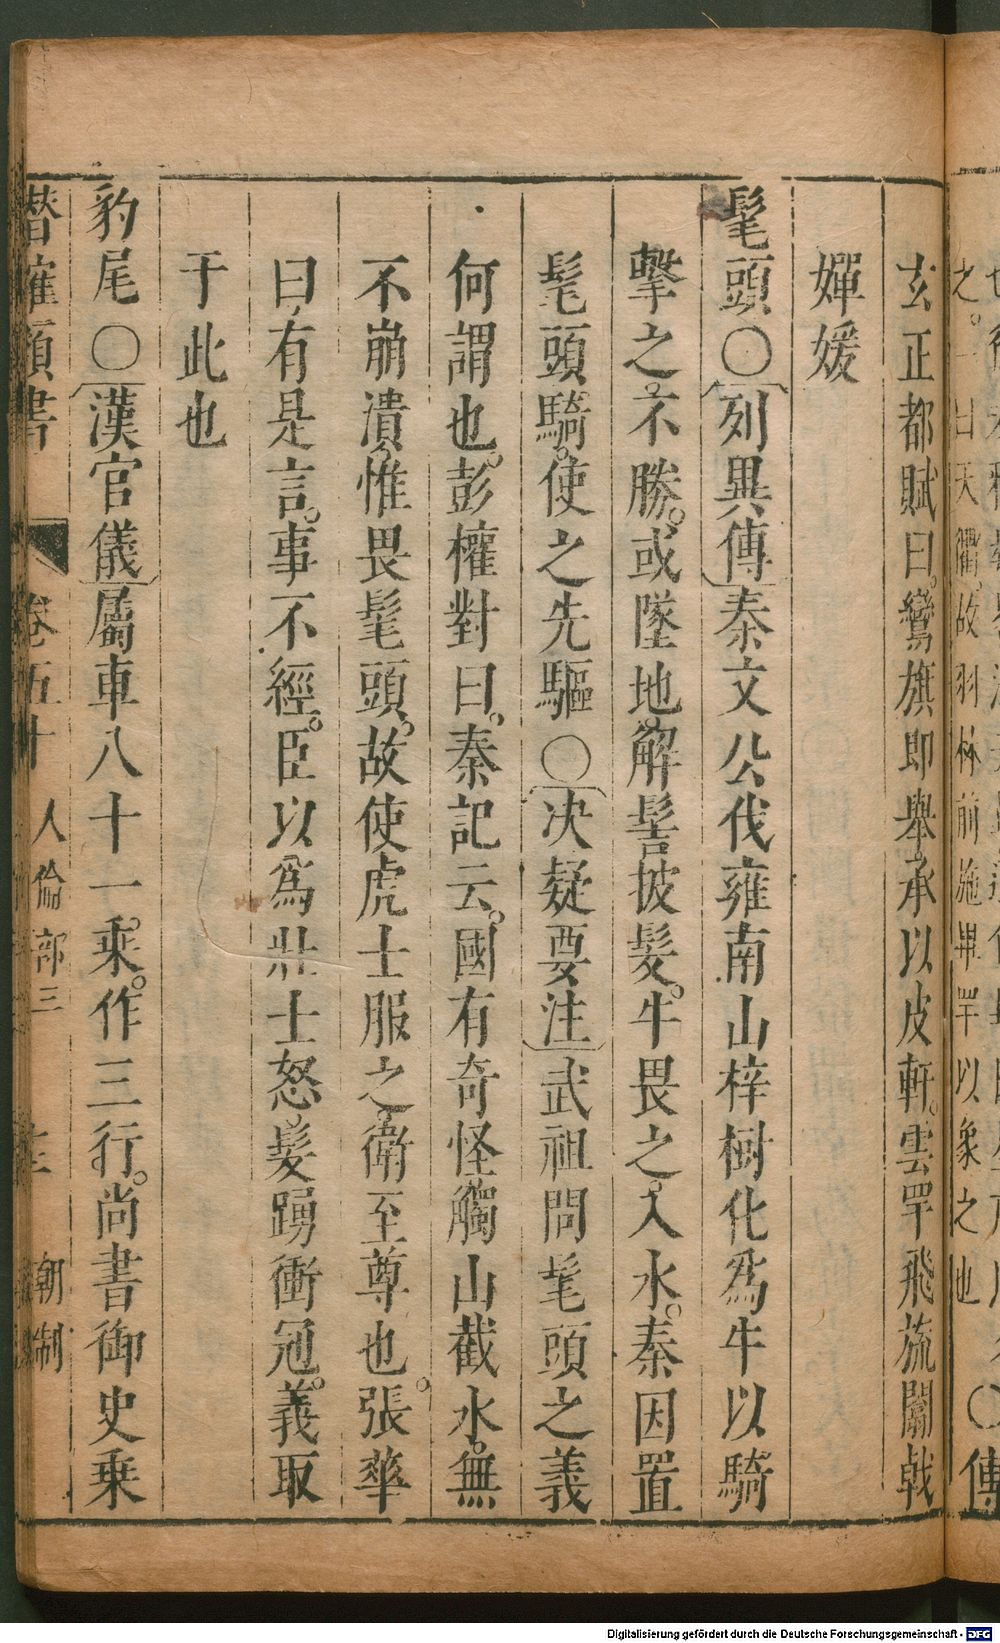 傳
之。一曰天衢、故羽林前施畢罕以象之也
玄正都賦曰。鸞旗即舉、承以皮軒。雲罕飛旒闟戟
嬋媛
髦頭〇列異傳秦文公伐雍南山梓樹化爲牛以騎
擊之。不勝。或墜地解髻披髮。牛畏之。入水。秦因置
髦頭騎。使之先驅〇决疑要注武祖問髦頭之義
何謂也。彭權對曰。秦記云。國有奇怪觸山截水。無
不崩潰、惟畏髦頭。故使虎士服之。衛至尊也。張華
曰、有是言。事不經。臣以爲壯士怒髮踴衝冠。義取
于此也
豹尾〇漢官儀屬車八十一乘。作三行。尚書御史乗
潛確類書 卷五十 人倫部三 朝制
Digitalisierung gefördert durch die Deutsche Forschungsgemeinschaft - DFG